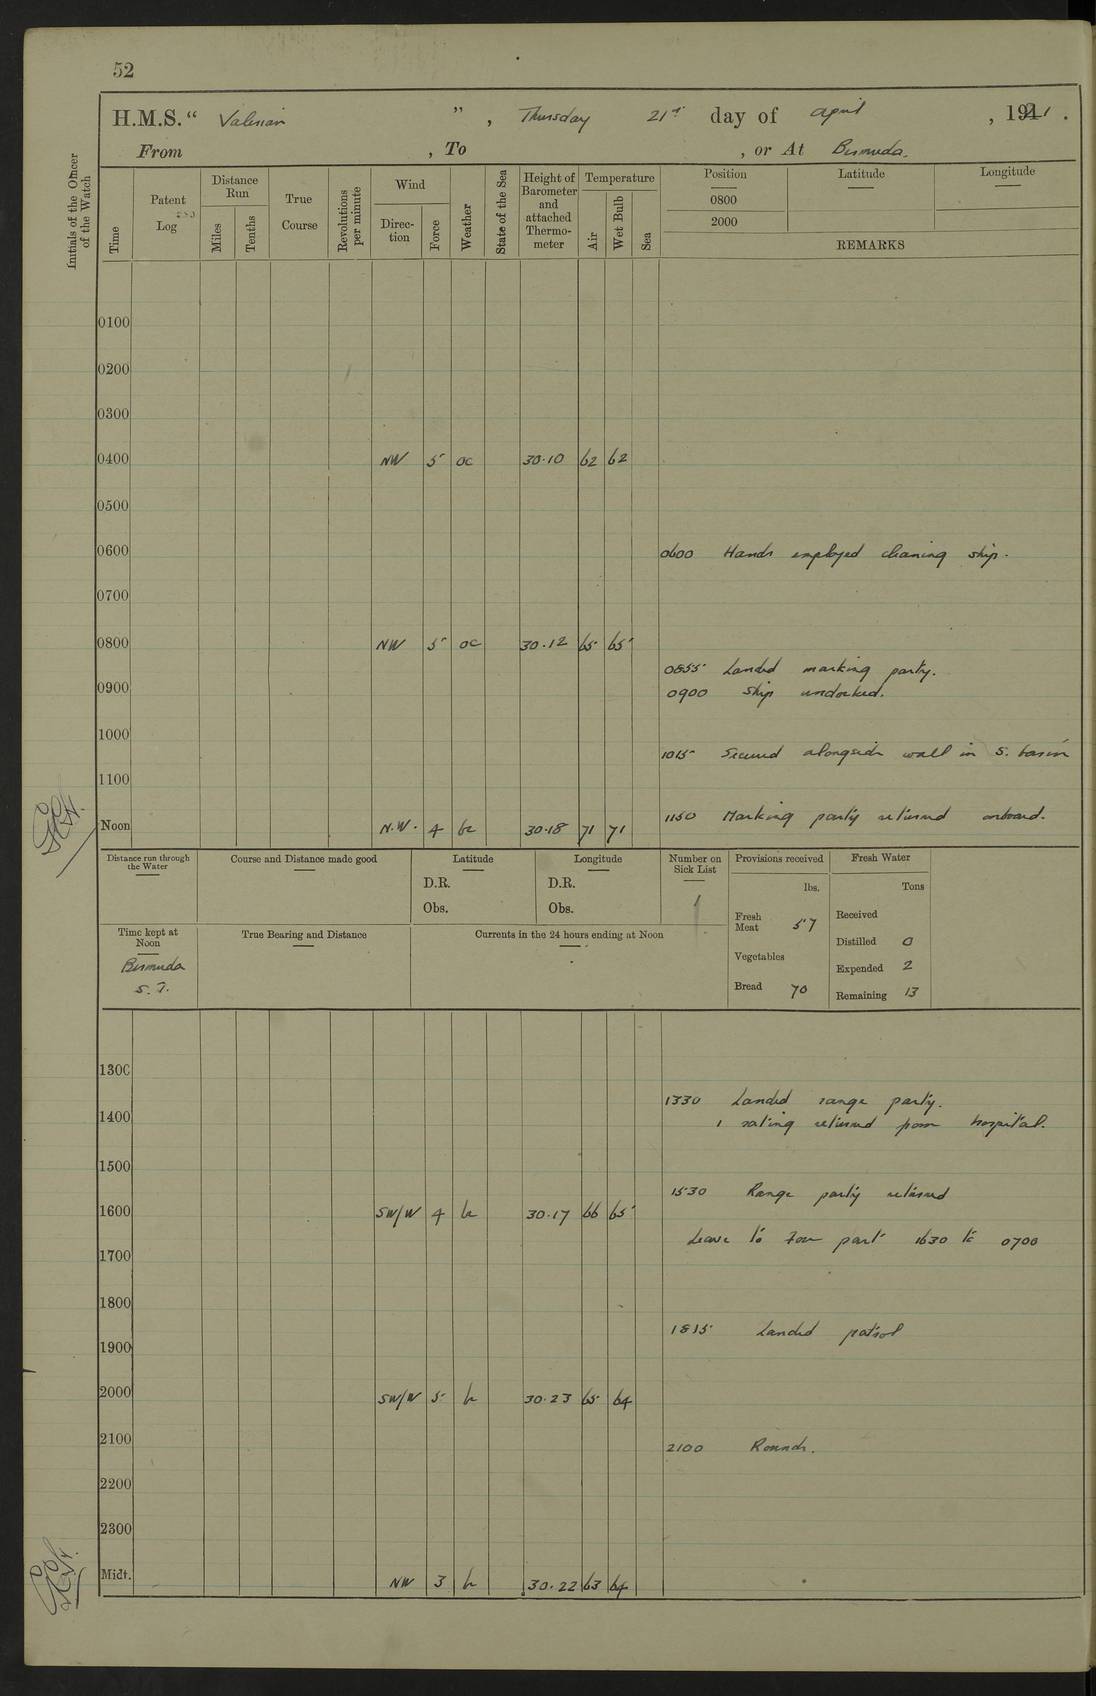 52
H.M.S. " Valerian " , Thursday 21st day of April , 1921 .
From , To , or At Bermuda.
Initials of the Officer of the Watch
Time
Patent Log
Distance Run
Miles
Tenths
True Course
Revolutions per minute
Wind
Direction
Force
Weather
State of the Sea
Height of Barometer and attached Thermometer
Temperature
Air
Wet Bulb
Sea
Position
0800
2000
Latitude
Longitude
REMARKS
0100
0200
0300
0400 NW 5 oc 30.10 62 62
0500
0600 0600 Hands employed cleaning ship.
0700
0800 NW 5 oc 30.12 65 65
0855 Landed marking party.
0900 0900 Ship undocked.
1000
1015 Secured alongside wall in S. basin
1100
1150 Marking party returned onboard.
Noon N.W. 4 bc 30.18 71 71
Distance run through the Water
Course and Distance made good
Latitude
D.R.
Obs.
Longitude
D.R.
Obs.
Number on Sick List
1
Provisions received
lbs.
Fresh Meat 57
Vegetables
Bread 70
Fresh Water
Tons
Received
Distilled 0
Expended 2
Remaining 13
Time kept at Noon
Bermuda
S.T.
True Bearing and Distance
Currents in the 24 hours ending at Noon
1300
1330 Landed range party.
1400 1 rating returned from hospital.
1500
1530 Range party returned
1600 SW/W 4 b 30.17 66 65
Leave to four part 1630 to 0700
1700
1800
1815 Landed patrol
1900
2000 SW/W 5 b 30.23 65 64
2100 2100 Rounds.
2200
2300
Midt. NW 3 b 30.22 63 64